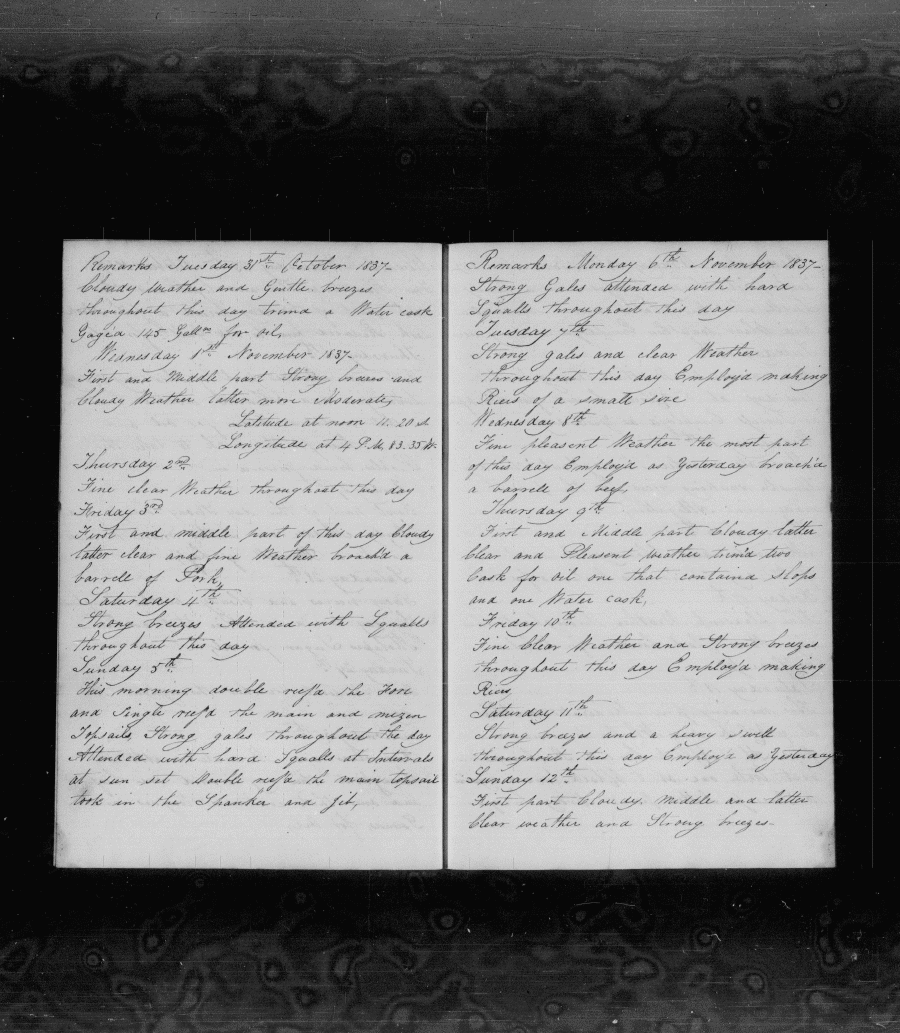 Remarks Tuesday 31st October 1837-
Cloudy weather and Gentle breezes
throughout this day trim'd a Water cask
Gage'd 145 Galln for oil,
Wednesday 1st November 1837
First and Middle part Strong breezes and
Cloudy Weather latter more Moderate,
Latitude at noon 11.20 S
Longitude at 4 P.M. 83.35 W.
Thursday 2nd
Fine clear Weather throughout this day
Friday 3rd
First and middle part of this day Cloudy
latter clear and fine Weather broach'd a
barrell of Pork,
Saturday 4th
Strong breezes Attended with Squalls
throughout this day
Sunday 5th
This morning double reef'd the Fore
and Single reef'd the main and mizen
Topsails Strong gales throughout the day
Attended with hard Squalls at Intervals
at sun set Double reef'd the main topsail
took in the Spanker and Jib,
Remarks Monday 6th November 1837-
Strong Gales attended with hard
Squalls throughout this day
Tuesday 7th
Strong gales and clear Weather
throughout this day Employ'd making
of a small size
Wednesday 8th
Fine pleasent Weather the most part
of this day Employ'd as Yesterday broach'd
a barrell of beef,
Thursday 9th
First and Middle part Cloudy latter
Clear and Pleasent weather trim'd two
Cask for oil one that containd slops
and one Water cask,
Friday 10th
Fine Clear Weather and Strong breezes
throughout this day Employ'd making
Saturday 11th
Strong breezes and a heavy swell
throughout this day Employ'd as Yesterday
Sunday 12th
First part Cloudy, middle and latter
Clear weather and Strong breezes-